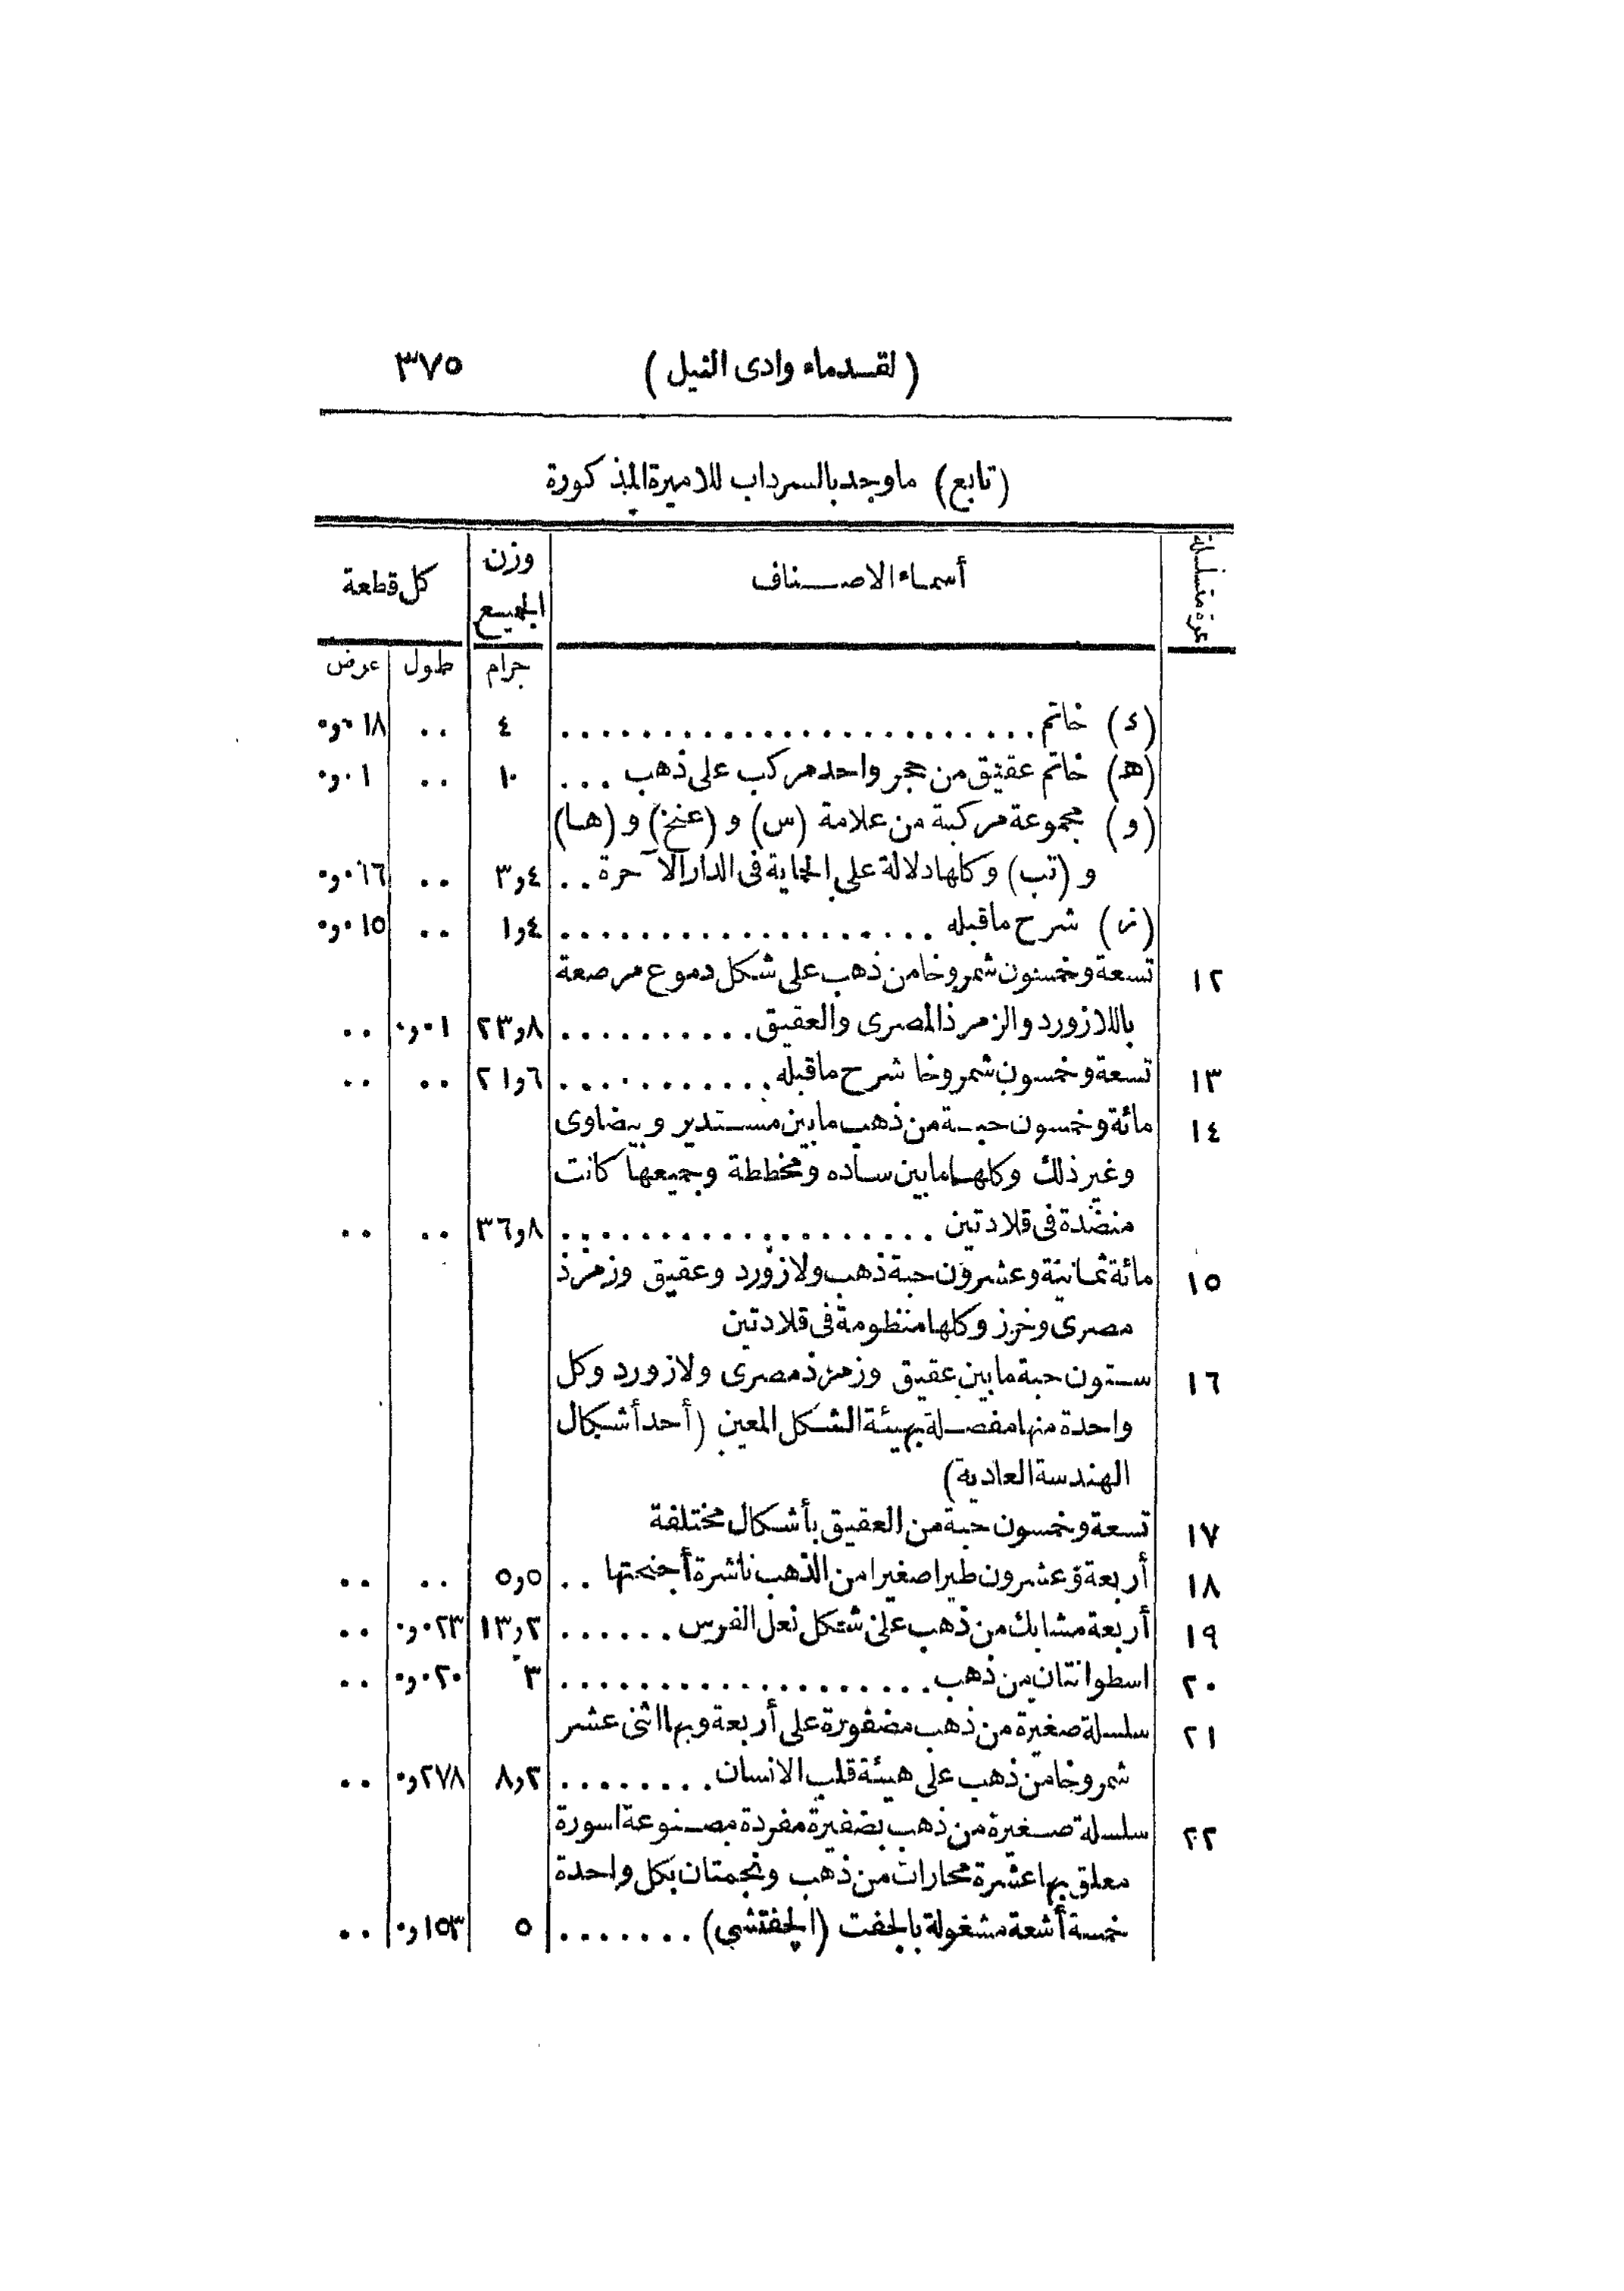 (لقدماء وادى النيل) ٣٧٥
(تابع) ماوجد بالسرداب للاميرة المذكورة
نمرة متسلسلة | أسماء الاصناف | وزن الجميع | كل قطعة
جرام | طول | عرض
(د) خاتم . . . . ٤ | .. | ٠١٨و٠
(هـ) خاتم عقيق من حجر واحد مركب على ذهب . . . ١٠ | .. | ٠١و٠
(و) مجموعة مركبة من علامة (س) و (عنخ) و (هـا)
و (تب) وكلها دلالة على الحماية فى الدار الآخرة . . ٤و٣ | .. | ٠١٦و٠
(ز) شرح ماقبله . . . . ٤و١ | .. | ٠١٥و٠
١٢ تسعة وخمسون شمروخا من ذهب على شكل دموع مرصعة
باللازورد والزمرذ المصرى والعقيق . . . . ٨و٢٣ | ٠١و٠ | ..
١٣ تسعة وخمسون شمروخا شرح ماقبله . . . . ٦و٢١ | .. | ..
١٤ مائة وخمسون حبة من ذهب مابين مستدير وبيضاوى
وغير ذلك وكلها مابين ساده ومخططة وجميعها كانت
منضدة فى قلادتين . . . . ٨و٣٦ | .. | ..
١٥ مائة ثمانية وعشرون حبة ذهب ولازورد وعقيق وزمرذ
مصرى وخرز وكلها منظومة فى قلادتين
١٦ ستون حبة مابين عقيق وزمرذ مصرى ولازورد وكل
واحدة منها مفصلة بهيئة الشكل المعين (أحد أشكال
الهندسة العادية)
١٧ تسعة وخمسون حبة من العقيق بأشكال مختلفة
١٨ أربعة وعشرون طيرا صغيرا من الذهب ناشرة أجنحتها . . ٥و٥ | .. | ..
١٩ أربعة مشابك من ذهب على شكل نعل الفرس . . . . ٢و١٣ | ٠٢٣و٠ | ..
٢٠ اسطوانتان من ذهب . . . . ٣ | ٠٢٠و٠ | ..
٢١ سلسلة صغيرة من ذهب مضفورة على أربعة وبها اثنى عشر
شمروخا من ذهب على هيئة قلب الانسان . . . . ٢و٨ | ٢٧٨و٠ | ..
٢٢ سلسلة صغيرة من ذهب بضفيرة مفردة مصنوعة اسورة
معلق بها عشرة محارات من ذهب ونجمتان بكل واحدة
خمسة أشعة مشغولة بالجفت (الجفتشى) . . . . ٥ | ١٥٣و٠ | ..